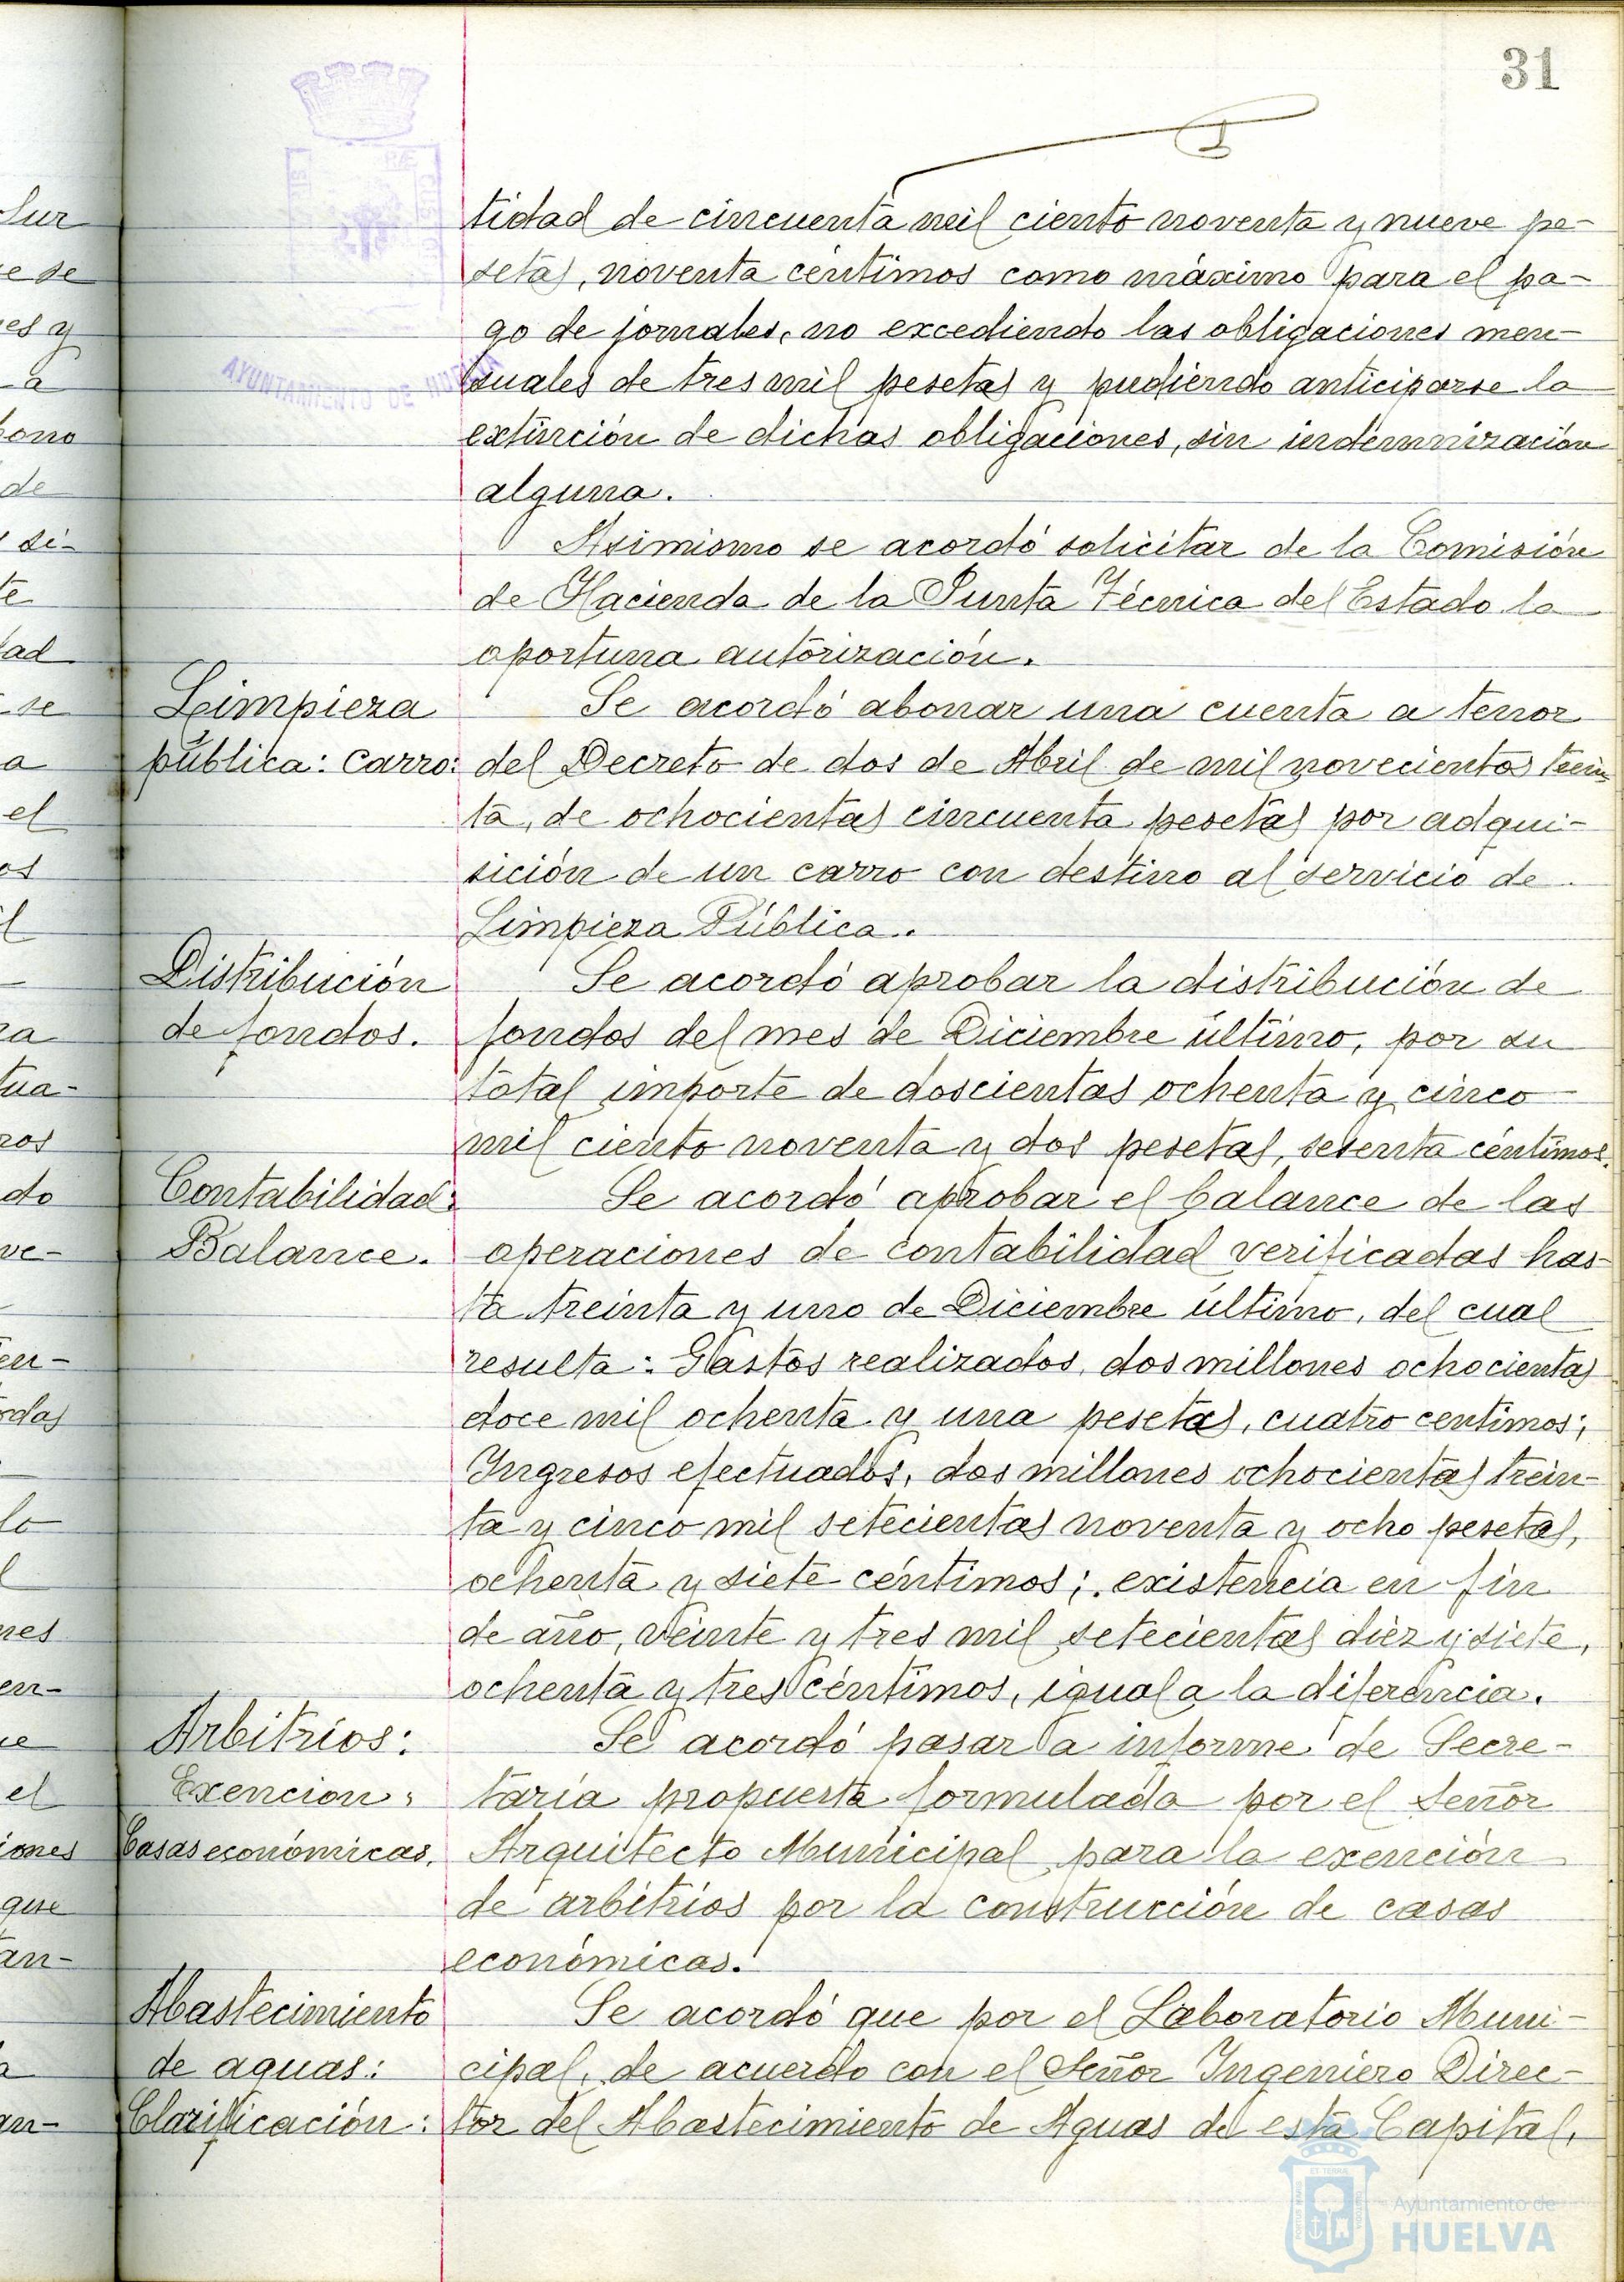 31
tidad de cincuenta mil ciento noventa y nueve pe-
setas, noventa céntimos como máximo para el pa-
go de jornales, no excediendo las obligaciones men-
suales de tres mil pesetas y pudiendo anticiparse la
extinción de dichas obligaciones, sin indemnización
alguna.
Asimismo se acordó solicitar de la Comisión
de Hacienda de la Junta Técnica del Estado la
oportuna autorización.
Limpieza
pública: Carro:
Se acordó abonar una cuenta a tenor
del Decreto de dos de Abril de mil novecientos trein
ta, de ochocientas cincuenta pesetas por adqui-
sición de un carro con destino al servicio de
Limpieza Pública.
Distribución
de fondos.
Se acordó aprobar la distribución de
fondos del mes de Diciembre último, por su
total importe de doscientas ochenta y cinco
mil ciento noventa y dos pesetas, sesenta céntimos.
Contabilidad:
Balance.
Se acordó aprobar el balance de las
operaciones de contabilidad verificadas has-
ta treinta y uno de Diciembre último, del cual
resulta: Gastos realizados, dos millones ochocientas
doce mil ochenta y una pesetas, cuatro centimos;
Ingresos efectuados, dos millones ochocientas trein-
ta y cinco mil setecientas noventa y ocho pesetas,
ochenta y siete céntimos; existencia en fin
de año, veinte y tres mil setecientas diez y siete,
ochenta y tres céntimos, igual a la diferencia.
Arbitrios:
Exencion:
Casas económicas.
Se acordó pasar a informe de Secre-
taría propuesta formulada por el Señor
Arquitecto Municipal para la exención
de arbitrios por la construcción de casas
económicas.
Abastecimiento
de aguas:
Clarificación:
Se acordó que por el Laboratorio Muni-
cipal, de acuerdo con el Señor Ingeniero Direc-
tor del Abastecimiento de Aguas de esta Capital,
AYUNTAMIENTO DE HUELVA
Ayuntamiento de
HUELVA